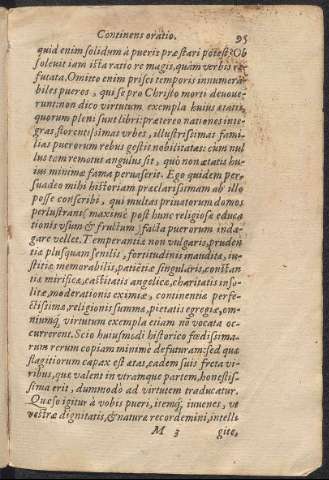 Continens oratio. 95
quid enim solidum à pueris præstari potest? Ob
soleuit iam ista ratio re magis, quàm verbis re
futata. Omitto enim prisci temporis innumera
biles pueros, qui se pro Christo morti deuoue-
runt: non dico virtutum exempla huius ætatis,
quorum pleni sunt libri: prætereo nationes inte-
gras, florentissimas vrbes, illustrissimas fami-
lias puerorum rebus gestis nobilitatas: cùm nul
lus tam remotus angulus sit, quò non ætatis hu
ius minimæ fama peruaserit. Ego quidem per-
suadeo mihi historiam præclarissimam ab illo
posse conscribi, qui multas priuatorum domos
perlustrans, maximè post hunc religiosæ educa
tionis vsum & fructum, facta puerorum inda-
gare vellet. Temperantiæ non vulgaris, pruden
tiæ plusquam senilis, fortitudinis inaudita, iu-
stitiæ memorabilis, patiëtiæ singularis, constan
tiæ mirificæ, castitatis angelicæ, charitatis inso-
litæ, moderationis eximiæ, continentiæ perfe-
ctissimæ, religionis summæ, pietatis egregiæ, om-
niumq́; virtutum exempla etiam nō vocata oc-
currerent. Scio huiusmodi historico fœdissima-
rum rerum copiam minimè defuturam: sed quæ
flagitiorum capax est ætas, eadem suis freta vi-
ribus, quæ valent in vtramque partem, honestis-
sima erit, dummodò ad virtutem traducatur.
Quæso igitur à vobis pueri, itemq́; iuuenes, vt
vestræ dignitatis, & naturæ recordemini, intelli-
M 3 gite,